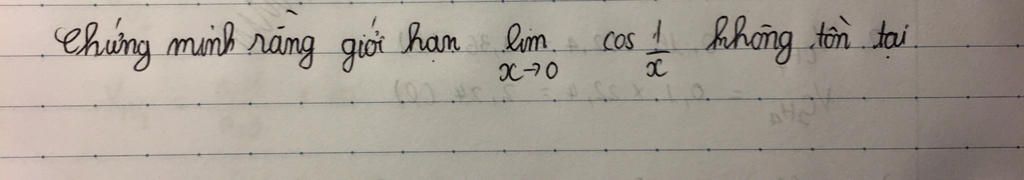 Chứng minh rằng giới hạn lim x→0 cos 1/x không tồn tại